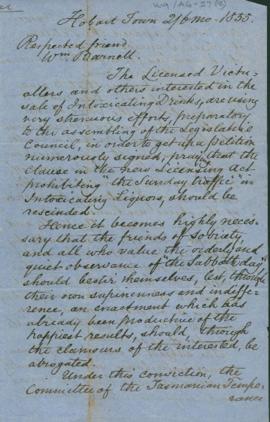 W9/A4-27(2)
Hobart Town 2/6mo. 1855.
Respected friend
Wm Barnell.
The Licensed Victu-
allers and others interested in the
sale of Intoxicating Drinks, are using
very strenuous efforts, preparatory
to the assembling of the Legislative
Council, in order to get up a petition
numerously signed, pray'g that the
Clause in the new Licensing Act
prohibiting "the Sunday traffic" in
Intoxicating Liquors, should be
rescinded.
Hence it becomes highly neces-
sary that the friends of sobriety
and all who value the orderly and
quiet observance of "the Sabbath day"
should bestir themselves, lest, through
their own supineness and indiffe-
rence, an enactment which has
already been productive of the
happiest results, should, through
the clamours of the interested, be
abrogated.
Under this conviction, the
Committee of the Tasmanian Tempe-
rance